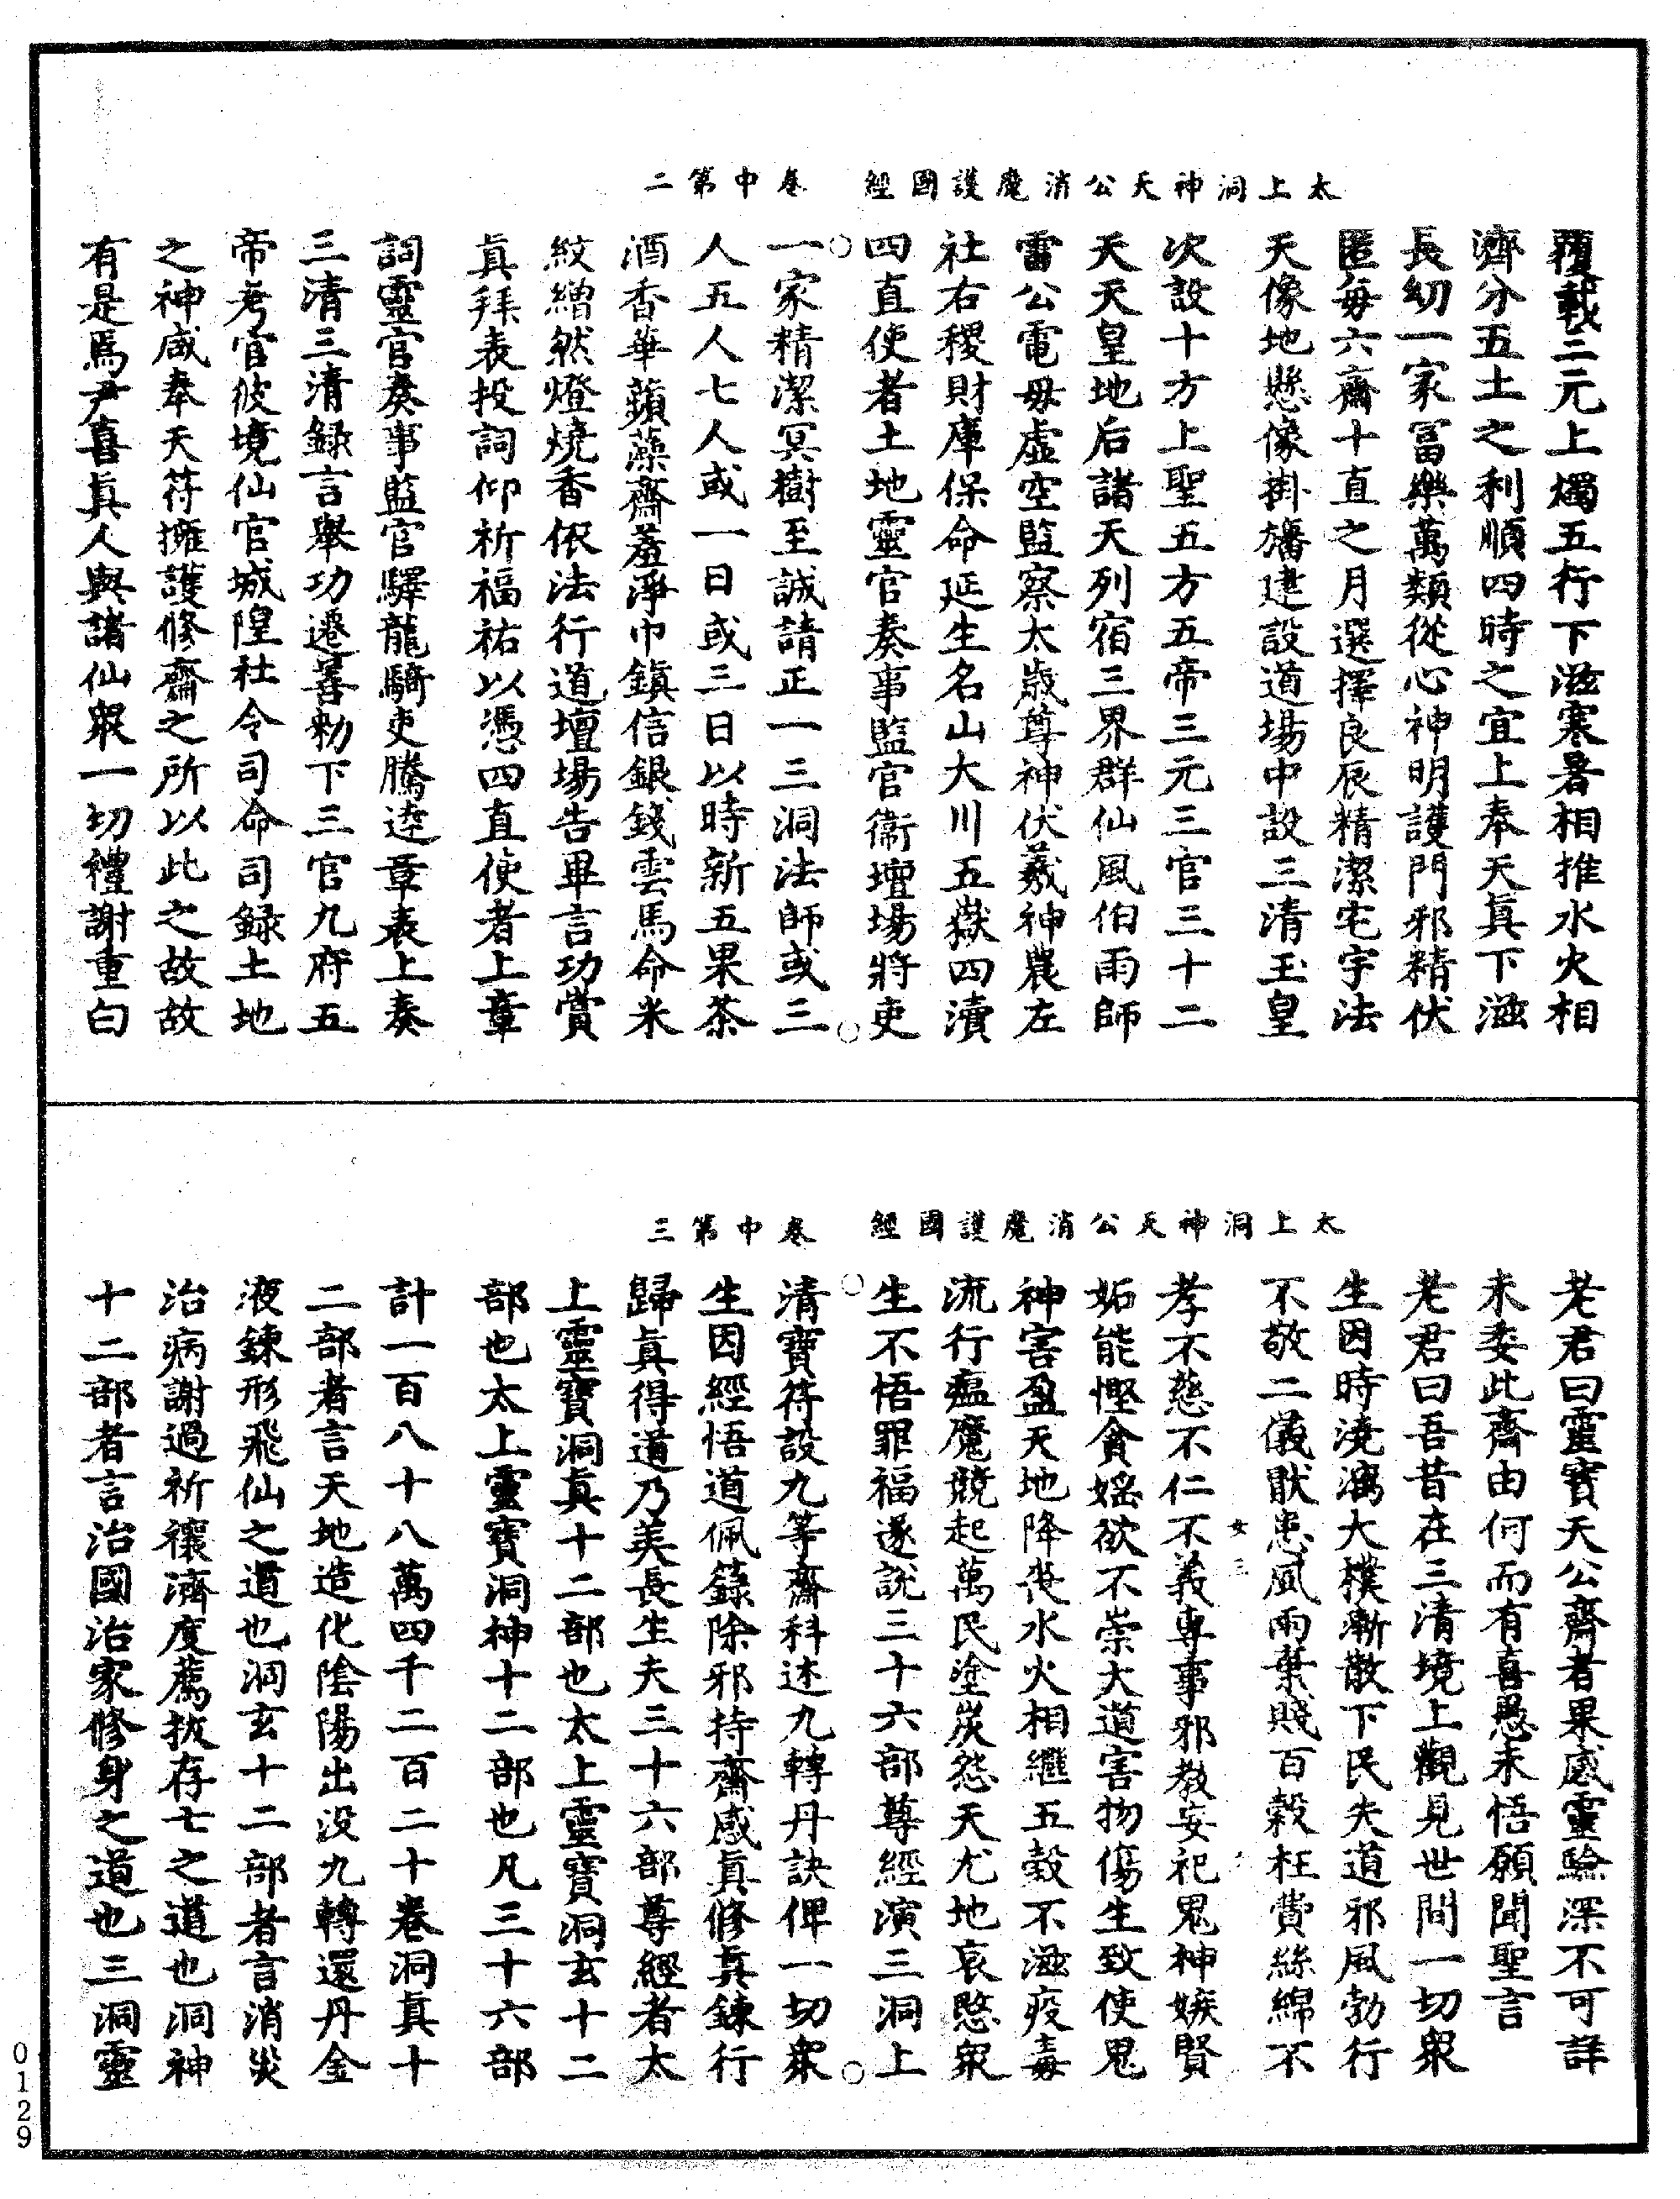 太上洞神天公消魔護國經　卷中第二
覆載二元上燭五行下滋寒暑相推水火相
濟分五土之利順四時之宜上奉天真下滋
長幼一家冨樂萬類從心神明護門邪精伏
匿每六齋十直之月選擇良辰精潔宅宇法
天像地懸像掛旛建設道場中設三清玉皇
次設十方上聖五方五帝三元三官三十二
天天皇地后諸天列宿三界群仙風伯雨師
雷公電母虛空監察太歲尊神伏羲神農左
社右稷財庫保命延生名山大川五嶽四瀆
四直使者土地靈官奏事監官衞壇場將吏
一家精潔冥樹至誠請正一三洞法師或三
人五人七人或一日或三日以時新五果茶
酒香華蘋藻齋羞淨巾鎮信銀錢雲馬命米
紋繒然燈燒香依法行道壇場告畢言功賞
真拜表投詞仰祈福祐以憑四直使者上章
詞靈官奏事監官驛龍騎吏騰逵章表上奏
三清三清録言舉功遷善勑下三官九府五
帝考官彼境仙官城隍社令司命司録土地
之神咸奉天符擁護修齋之所以此之故故
有是焉尹喜真人與諸仙衆一切禮謝重白
太上洞神天公消魔護國經　卷中第三
老君曰靈寶天公齋者果感靈驗深不可詳
未委此齋由何而有喜愚未悟願聞聖言
老君曰吾昔在三清境上觀見世間一切衆
生因時澆漓大樸漸散下民失道邪風勃行
不敬二儀猒患風雨棄賤百穀枉費絲綿不
孝不慈不仁不義專事邪教妄祀鬼神嫉賢
妬能慳貪婬欲不崇大道害物傷生致使鬼
神害盈天地降喪水火相繼五穀不滋疫毒
流行瘟魔競起萬民塗炭怨天尤地哀愍衆
生不悟罪福遂說三十六部尊經演三洞上
清寶符設九等齋科述九轉丹訣俾一切衆
生因經悟道佩籙除邪持齋感真修真鍊行
歸真得道乃美長生夫三十六部尊經者太
上靈寶洞真十二部也太上靈寶洞玄十二
部也太上靈寶洞神十二部也凡三十六部
計一百八十八萬四千二百二十卷洞真十
二部者言天地造化陰陽出没九轉還丹金
液鍊形飛仙之道也洞玄十二部者言消災
治病謝過祈禳濟度薦拔存亡之道也洞神
十二部者言治國治家修身之道也三洞靈
女三
0129